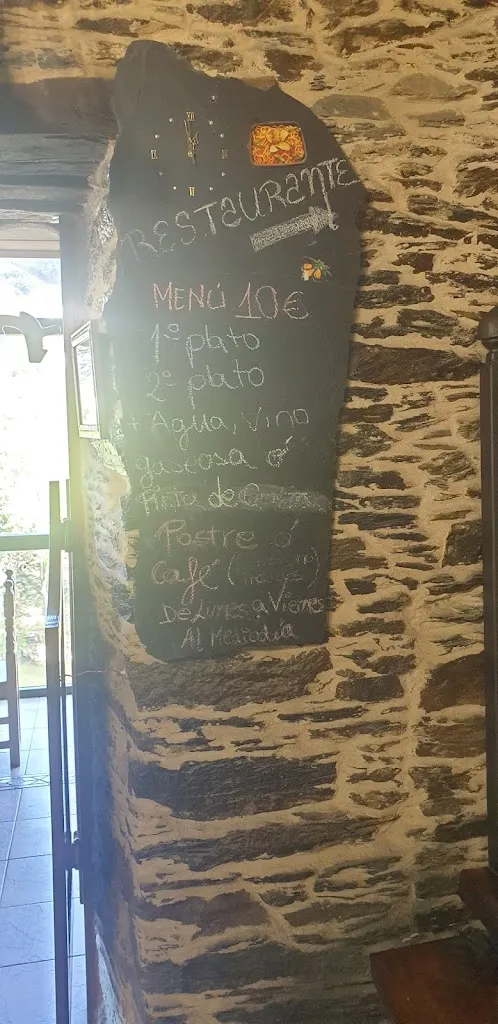 XII
RESTAURANTE
MENÚ 10€
1º plato
2º plato
+ Agua, Vino
gaseosa ó
Pinta de
Postre ó
Café (
De Lunes a Viernes
Al Mediodía